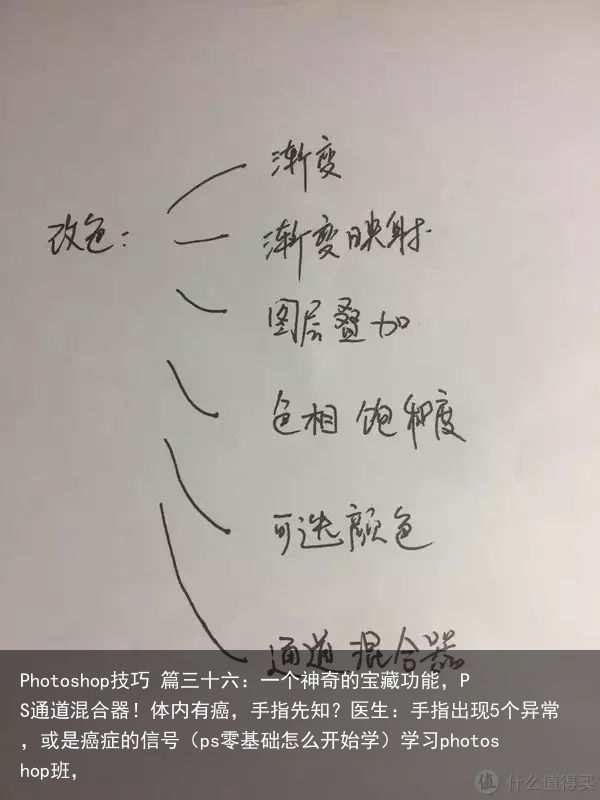 渐变
改色：
渐变映射
图层叠加
色相 饱和度
可选颜色
通道混合器
Photoshop技巧 篇三十六：一个神奇的宝藏功能，P
S通道混合器！体内有癌，手指先知？医生：手指出现5个异常
，或是癌症的信号（ps零基础怎么开始学）学习photos
hop班，
值 什么值得买